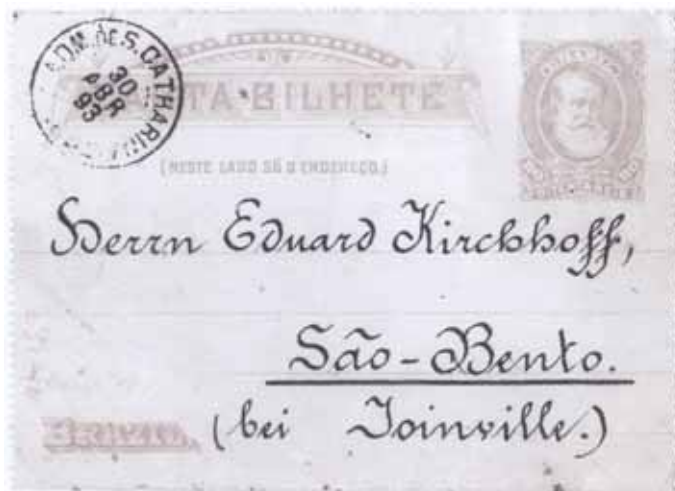 ADM. DE S. CATHARINA
30
ABR
93
CARTA-BILHETE
(NESTE LADO SÓ O ENDEREÇO.)
Herrn Eduard Kirchhoff,
São-Bento.
BRAZIL. (bei Joinville.)